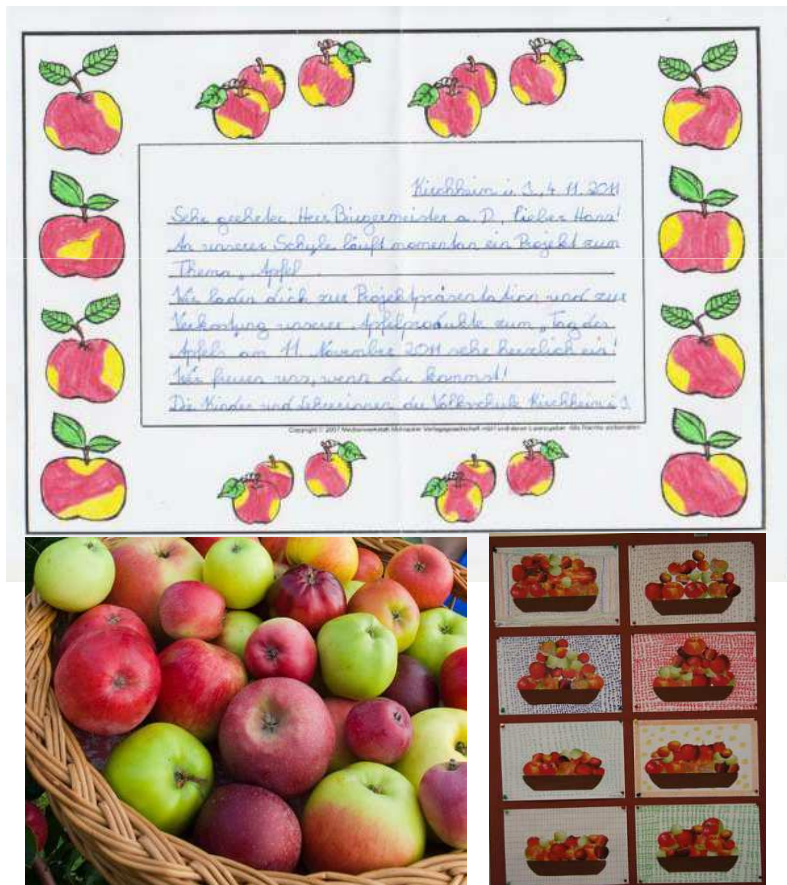 Kirchheim i. I., 4. 11. 2011
Sehr geehrter Herr Bürgermeister a. D., lieber Hans!
An unserer Schule läuft momentan ein Projekt zum
Thema „Apfel
Wir laden dich zur Projektpräsentation und zur
Verkostung unserer Apfelprodukte zum „Tag des
Apfels am 11. November 2011 sehr herzlich ein!
Wir freuen uns, wenn du kommst!
Die Kinder und Lehrerinnen der Volksschule Kirchheim i. I.
Copyright © 2007 Medienwerkstatt Mühlacker Verlagsgesellschaft mbH und deren Lizenzgeber. Alle Rechte vorbehalten